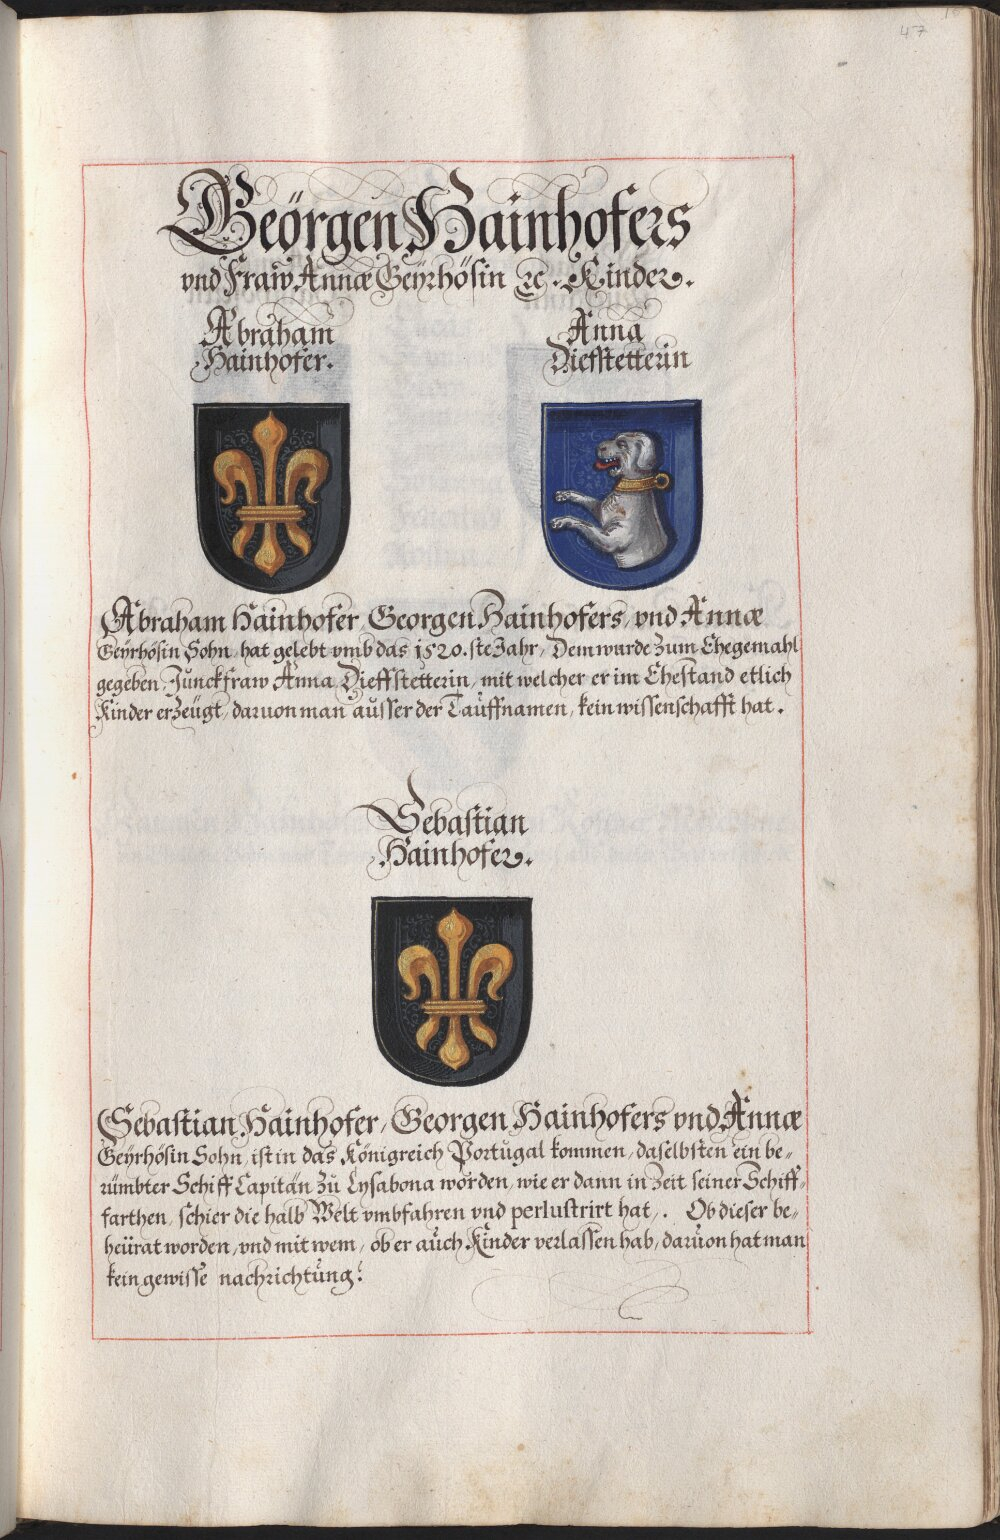 47
Geörgen Hainhofers
vnd Fraw Annæ Geÿrhösin ꝛc. Kinder.
Abraham
Hainhofer.
Anna
Diefstetterin
Abraham Hainhofer, Georgen Hainhofers, vnd Annæ
Geÿrhösin Sohn, hat gelebt vmb das 1520.ste Jahr, Dem wurde zum Ehegemahl
gegeben, Junckfraw Anna Dieffstetterin, mit welcher er im Ehestand etlich
Kinder erzeügt, daruon man ausser der Tauffnamen, kein wissenschafft hat.
Sebastian
Hainhofer.
Sebastian Hainhofer, Georgen Hainhofers vnd Annæ
Geÿrhösin Sohn, ist in das Königreich Portugal kommen, daselbsten ein be-
rümbter Schiff Capitän zu Lysabona worden, wie er dann in Zeit seiner Schiff-
farthen, schier die halb Welt vmbfahren vnd perlustrirt hat. Ob dieser be-
heürat worden, vnd mit wem, ob er auch Kinder verlassen hab, daruon hat man
kein gewisse nachrichtung.